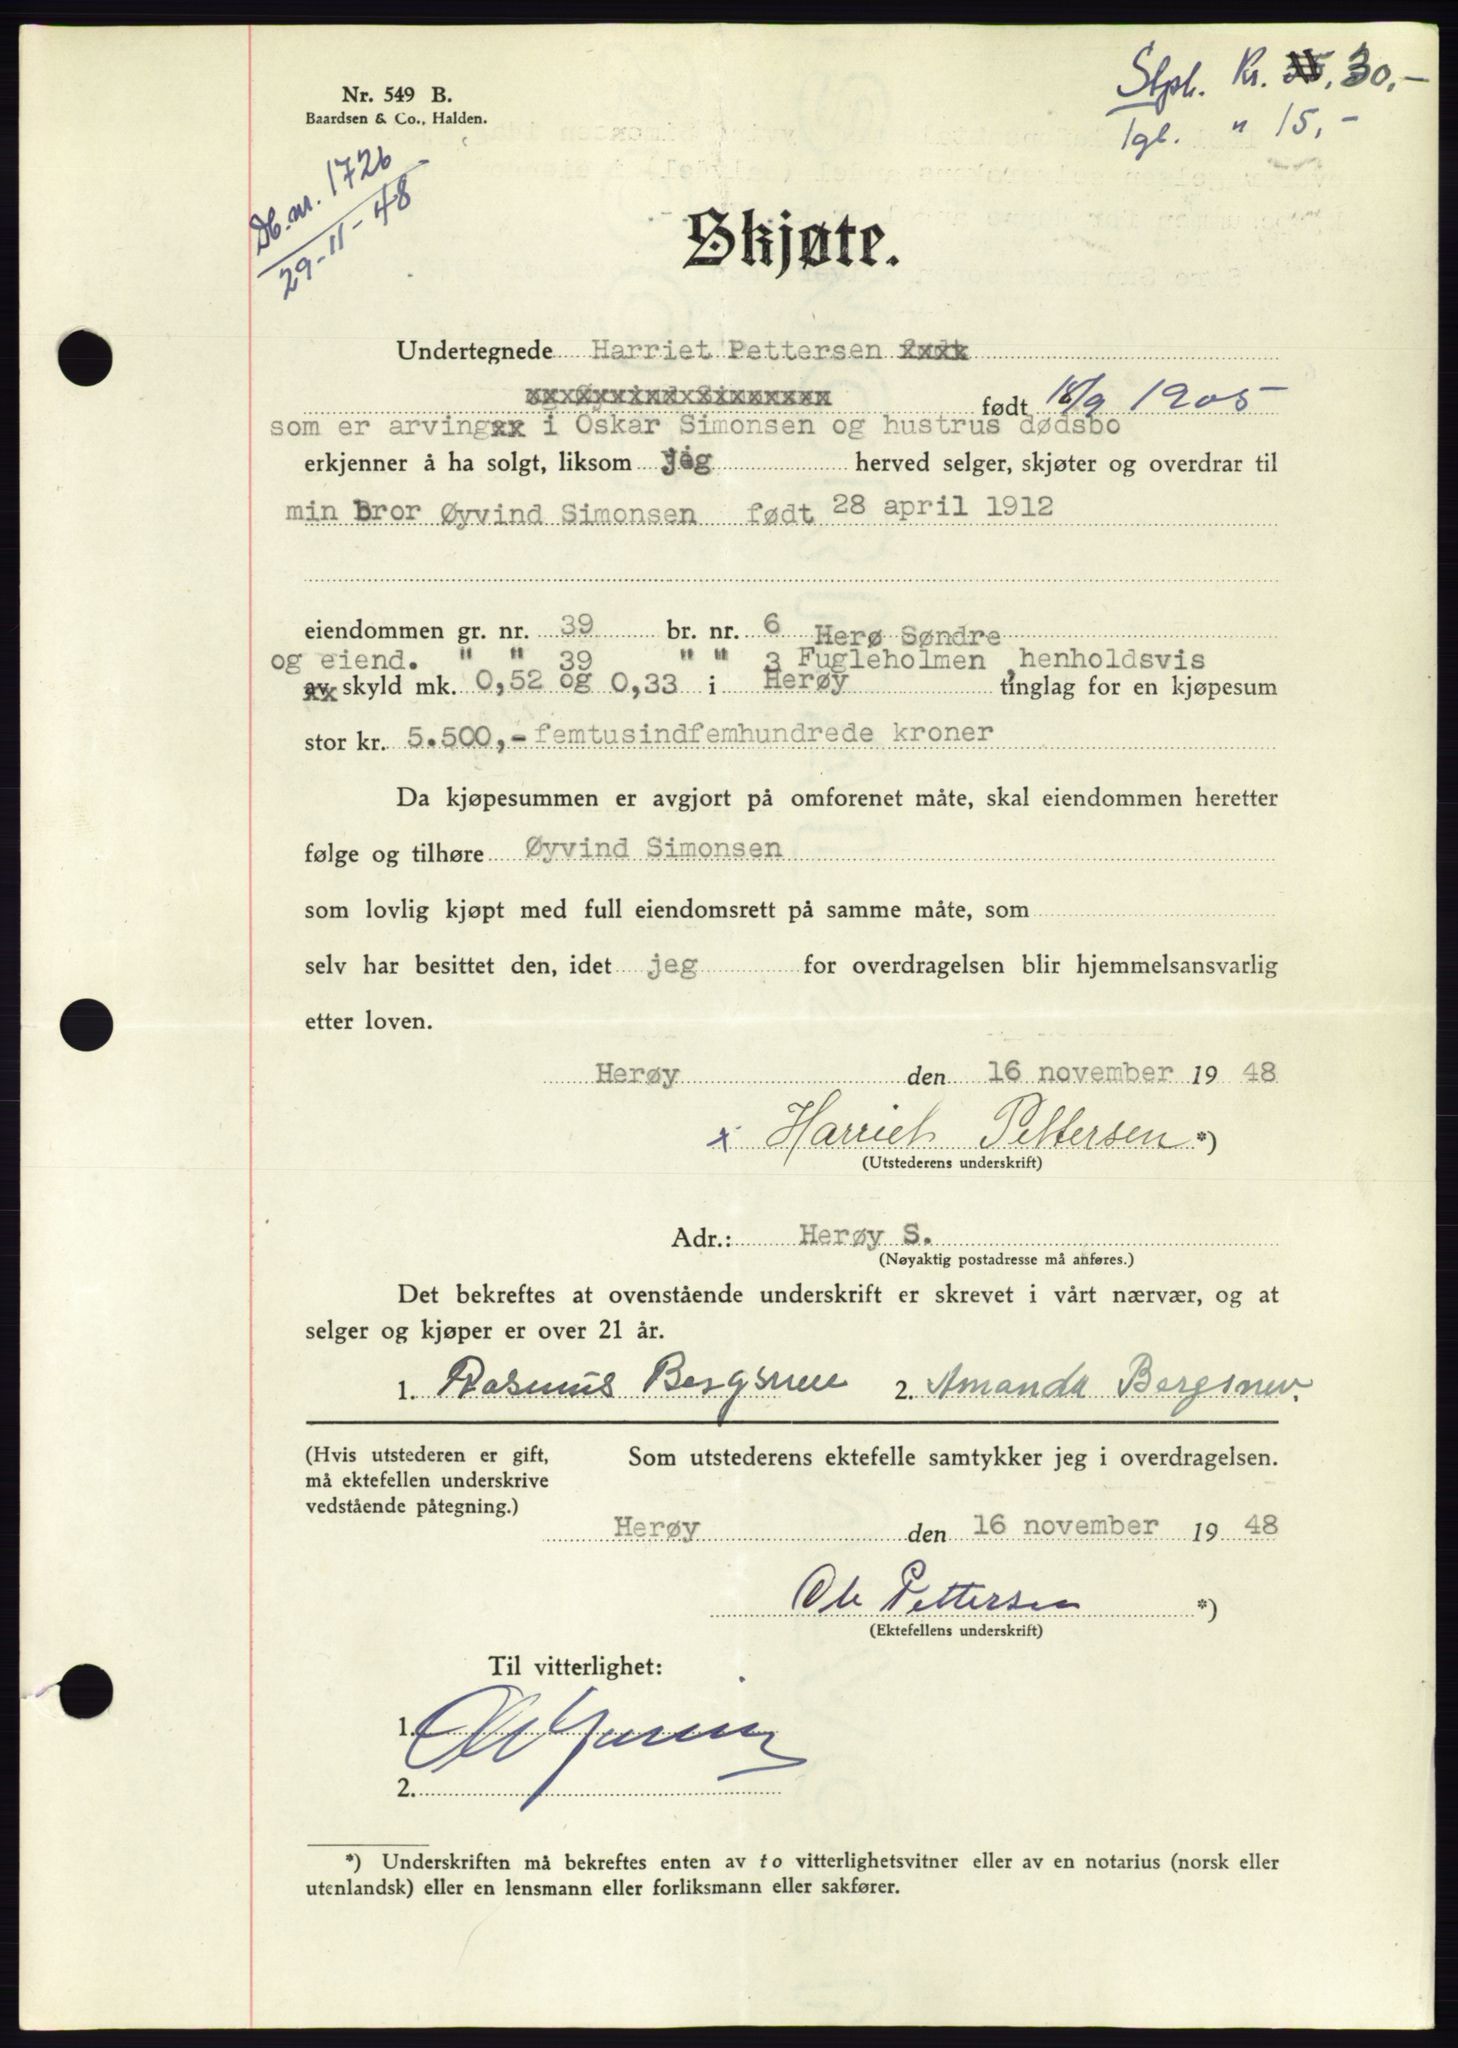 Stph. Kr. 30,-
Tgl. " 15,-
Nr. 549 B.
Baardsen & Co., Halden.
Db. nr. 1726
29-11-48
Skjøte.
Undertegnede Harriet Pettersen
født 18/9 1905
som er arving i Oskar Simonsen og hustrus dødsbo
erkjenner å ha solgt, liksom jeg herved selger, skjøter og overdrar til
min bror Øyvind Simonsen født 28 april 1912
eiendommen gr. nr. 39 br. nr. 6 Herø Søndre
og eiend. " " 39 " " 3 Fugleholmen ,henholdsvis
av skyld mk. 0,52 og 0,33 i Herøy tinglag for en kjøpesum
stor kr. 5.500,- femtusindfemhundrede kroner
Da kjøpesummen er avgjort på omforenet måte, skal eiendommen heretter
følge og tilhøre Øyvind Simonsen
som lovlig kjøpt med full eiendomsrett på samme måte, som
selv har besittet den, idet jeg for overdragelsen blir hjemmelsansvarlig
etter loven.
Herøy den 16 november 19 48
x Harriet Pettersen *)
(Utstederens underskrift)
Adr.: Herøy S.
(Nøyaktig postadresse må anføres.)
Det bekreftes at ovenstående underskrift er skrevet i vårt nærvær, og at
selger og kjøper er over 21 år.
1. Rasmus Bergsnev 2. Amanda Bergsnev.
(Hvis utstederen er gift, Som utstederens ektefelle samtykker jeg i overdragelsen.
må ektefellen underskrive
vedstående påtegning.)
Herøy den 16 november 19 48
Ole Pettersen *)
(Ektefellens underskrift)
Til vitterlighet:
1.
2.
*) Underskriften må bekreftes enten av to vitterlighetsvitner eller av en notarius (norsk eller
utenlandsk) eller en lensmann eller forliksmann eller sakfører.